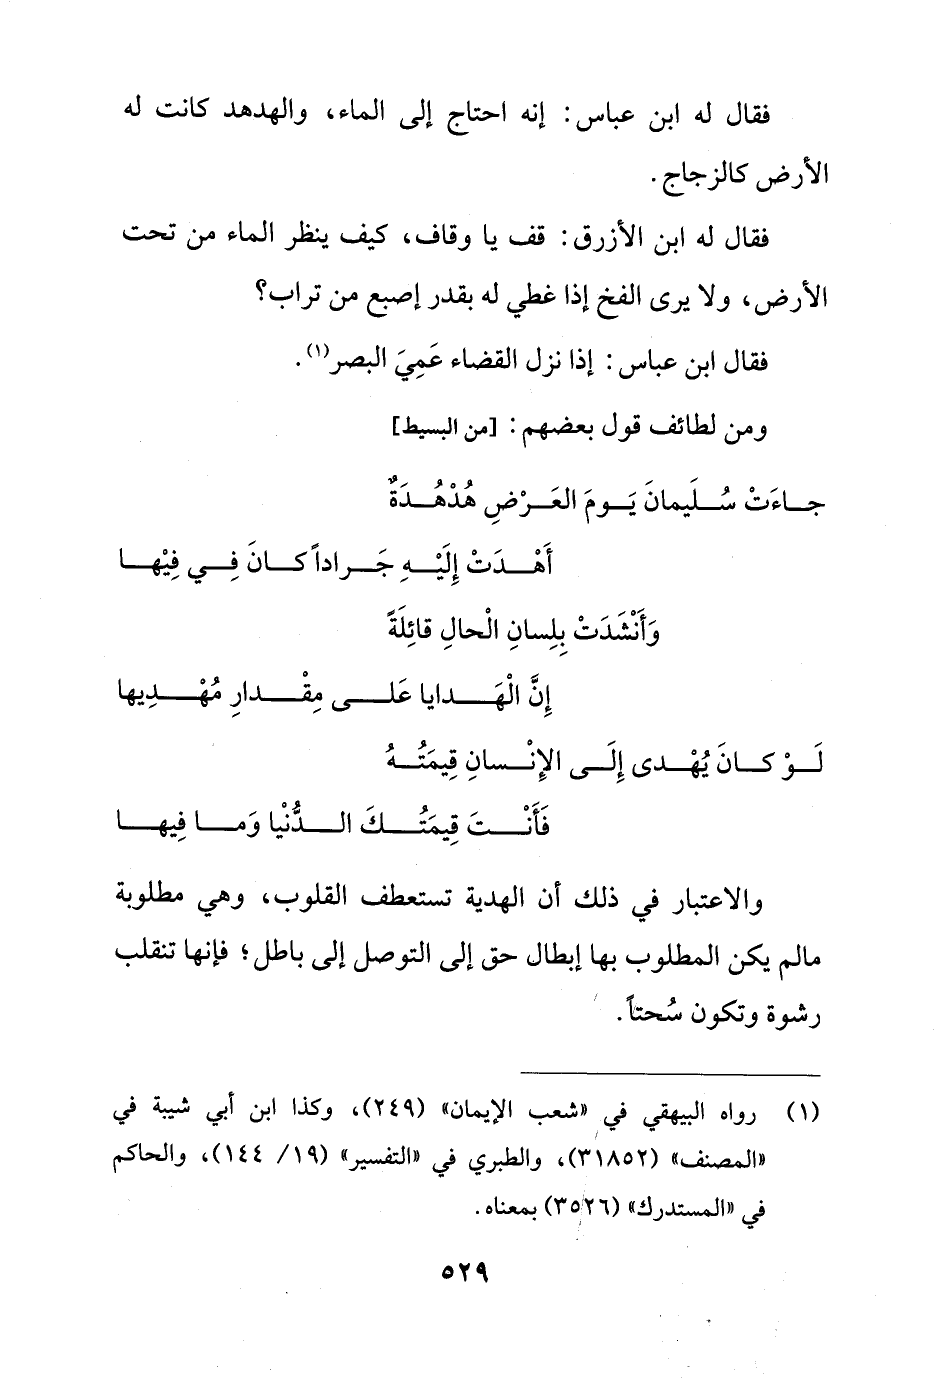 فقال له ابن عباس: إنه احتاج إلى الماء، والهدهد كانت له
الأرض كالزجاج.
فقال له ابن الأزرق: قف يا وقاف، كيف ينظر الماء من تحت
الأرض، ولا يرى الفخ إذا غطي له بقدر إصبع من تراب؟
فقال ابن عباس: إذا نزل القضاء عَمِيَ البصر(١).
ومن لطائف قول بعضهم: [من البسيط]
جــاءَتْ سُــلَيمانَ يَــومَ العَــرْضِ هُدْهُــدَةٌ
أَهْــدَتْ إِلَيْــهِ جَــراداً كــانَ فِــي فِيْهــا
وَأَنْشَدَتْ بِلِسانِ الْحالِ قائِلَةً
إِنَّ الْهَــدايا عَلــى مِقْــدارِ مُهْــدِيها
لَــوْ كــانَ يُهْــدى إِلَــى الإِنْــسانِ قِيمَتُــهُ
فَأَنْــتَ قِيمَتُــكَ الــدُّنْيا وَمــا فِيهــا
والاعتبار في ذلك أن الهدية تستعطف القلوب، وهي مطلوبة
مالم يكن المطلوب بها إبطال حق إلى التوصل إلى باطل؛ فإنها تنقلب
رشوة وتكون سُحتاً.
(١) رواه البيهقي في «شعب الإيمان» (٢٤٩)، وكذا ابن أبي شيبة في
«المصنف» (٣١٨٥٢)، والطبري في «التفسير» (١٩/ ١٤٤)، والحاكم
في «المستدرك» (٣٥٢٦) بمعناه.
٥٢٩